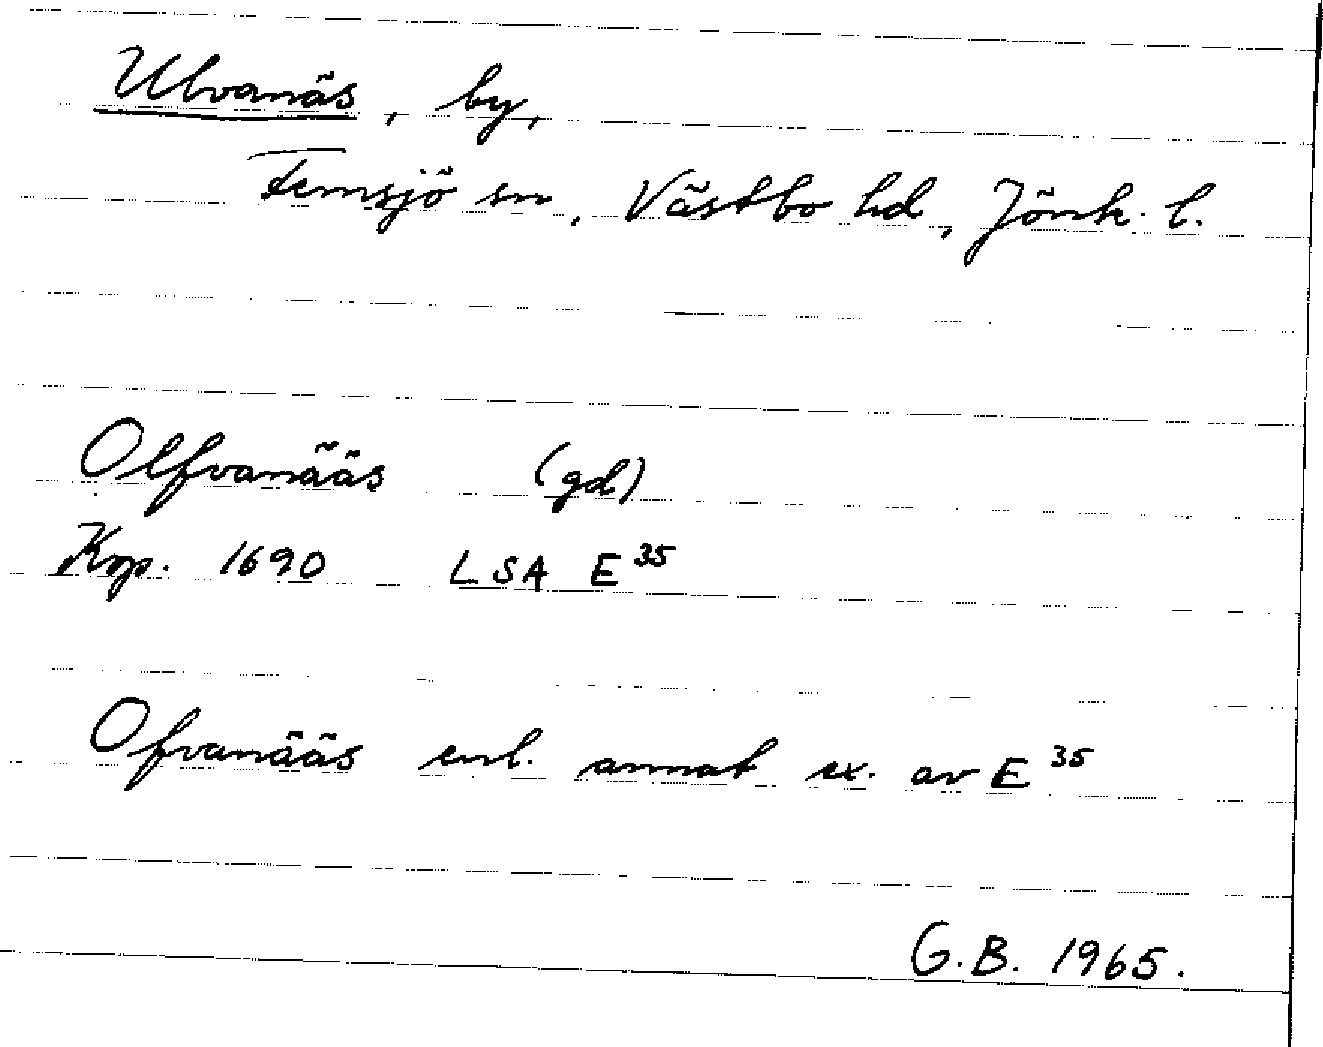 Ulvanäs, by,
Femsjö sn, Västbo hd, Jönk. l.
Olfvanääs (gd)
Kop. 1690 LSA E 35
Ofvanääs enl. annat ex. av E 35
G.B. 1965.